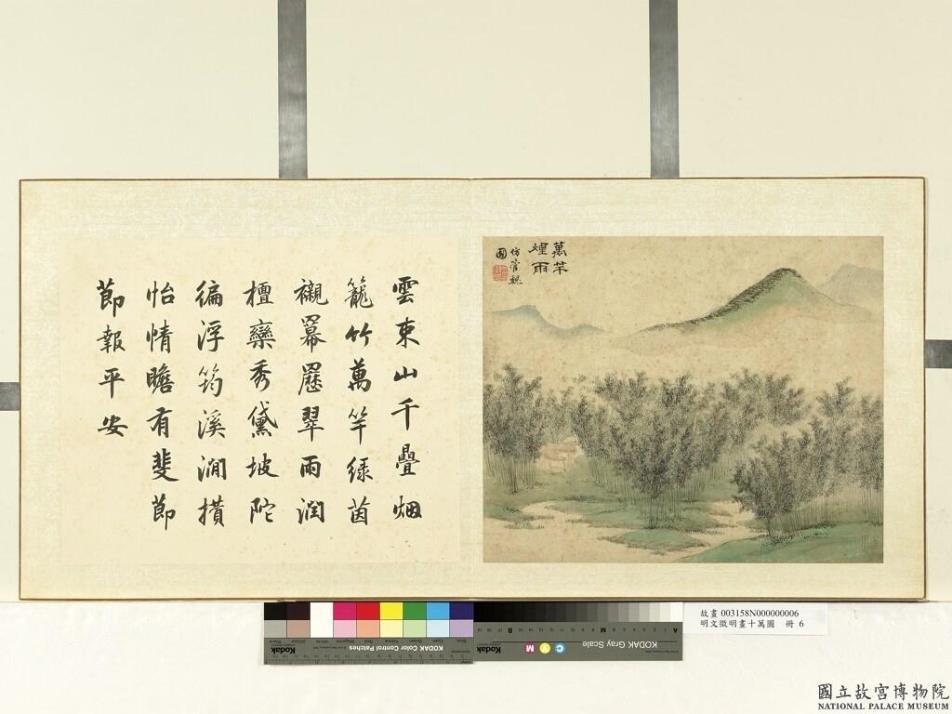 萬竿
煙雨
仿管魏
國
雲東山千疊烟
籠竹萬竿綠茵
襯冪羃歷翠雨潤
檀欒秀黛坡陀
徧浮筠溪澗攢
怡情瞻有斐節
節報平安
故畫 003158N000000006
明文徵明畫十萬圖 冊 6
KODAK Color Control Patches
Kodak
KODAK Gray Scale
Kodak
A
M
B
C Y M
國立故宮博物院
NATIONAL PALACE MUSEUM